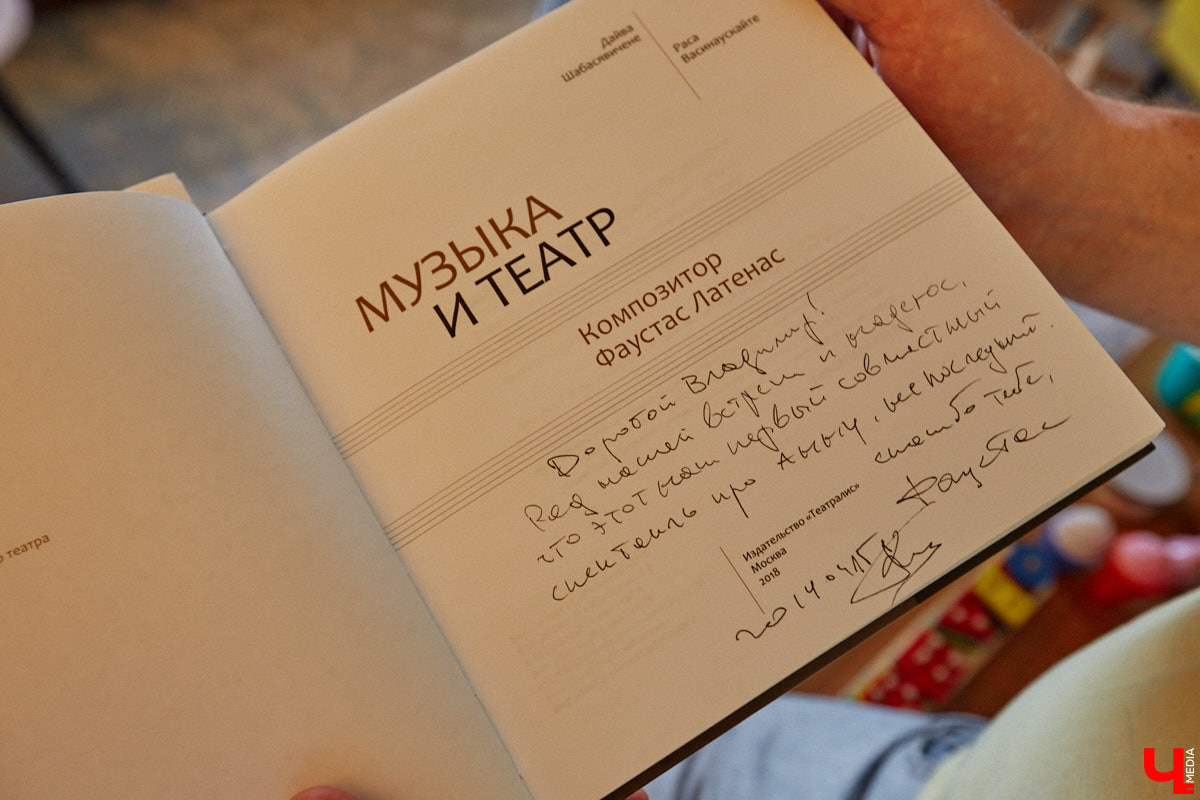 Дайва
Шабасявичене
Раса
Васинаускайте
МУЗЫКА
И ТЕАТР
Композитор
Фаустас Латенас
Дорогой Владимир!
Рад нашей встречи и надеюсь,
что этот наш первый совместный
спектакль про не последний.
спасибо тебе,
Фаустас
Издательство «Театралис»
Москва
2018
о театра
Ч MEDIA